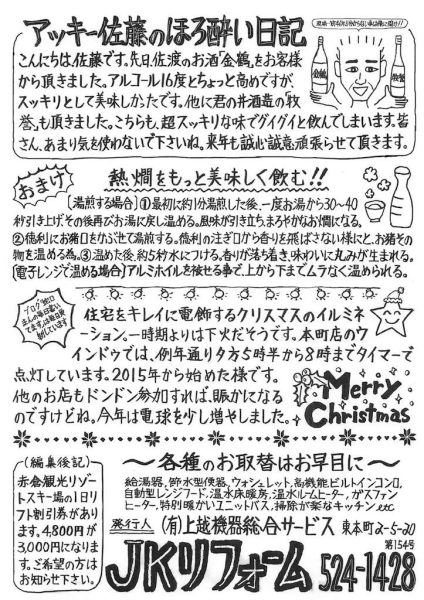 アッキー佐藤のほろ酔い日記
こんにちは、佐藤です。先日、佐渡のお酒「金鶴」をお客様
から頂きました。アルコール16度とちょっと高めですが、
スッキリとして美味しかったです。他に君の井酒造の「牧
誉」も頂きました。こちらも、超スッキリな味でグイグイと飲んでしまいます。皆
さん、あまり気を使わないで下さいね。来年も誠心誠意頑張らせて頂きます。
金鶴
おまけ
熱燗をもっと美味しく飲む!!
[湯煎する場合]①最初に約1分湯煎した後、一度お湯から30~40
秒引き上げ、その後再びお湯に戻し温める。風味が引き立ち、まろやかなお燗になる。
②徳利にお猪口をかぶせて湯煎する。徳利の注ぎ口から香りを飛ばさない様にと、お猪その
物を温める為。③温めた後、約5秒水につける。香りが落ち着き、味わいに丸みが生まれる。
[電子レンジで温める場合]アルミホイルを被せる事で、上から下までムラなく温められる。
住宅をキレイに電飾するクリスマスのイルミネ
ーション。一時期よりは下火だそうです。本町店のウ
インドゥでは、例年通り夕方5時半から8時までタイマーで
点灯しています。2015年から始めた様です。
他のお店もドンドン参加すれば、賑かになる
のですけどね。今年は電球を少し増やしました。
Merry
Christmas
(編集後記)
赤倉観光リゾー
トスキー場の1日リ
フト割引券があり
ます。4,800円が
3,000円になりま
す。ご希望の方は
お知らせ下さい。
~各種のお取替はお早目に~
給湯器、節水型便器、ウォシュレット、高機能ビルトインコンロ、
自動型レンジフード、温水床暖房、温水ルームヒーター、ガスファン
ヒーター、特別暖かいユニットバス、掃除が楽なキッチン etc
発行人 (有)上越機器総合サービス 東本町2-5-20
第154号
JKリフォーム 524-1428